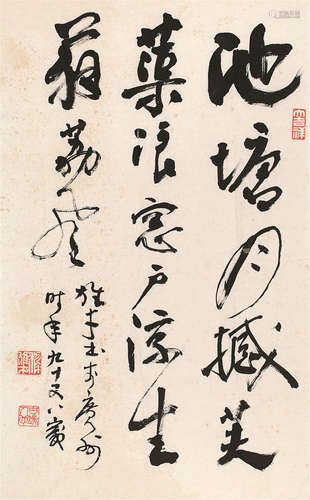 池塘月撼芙
蕖浪窓户凉生
薜荔风
书于广州
时年九十又八岁